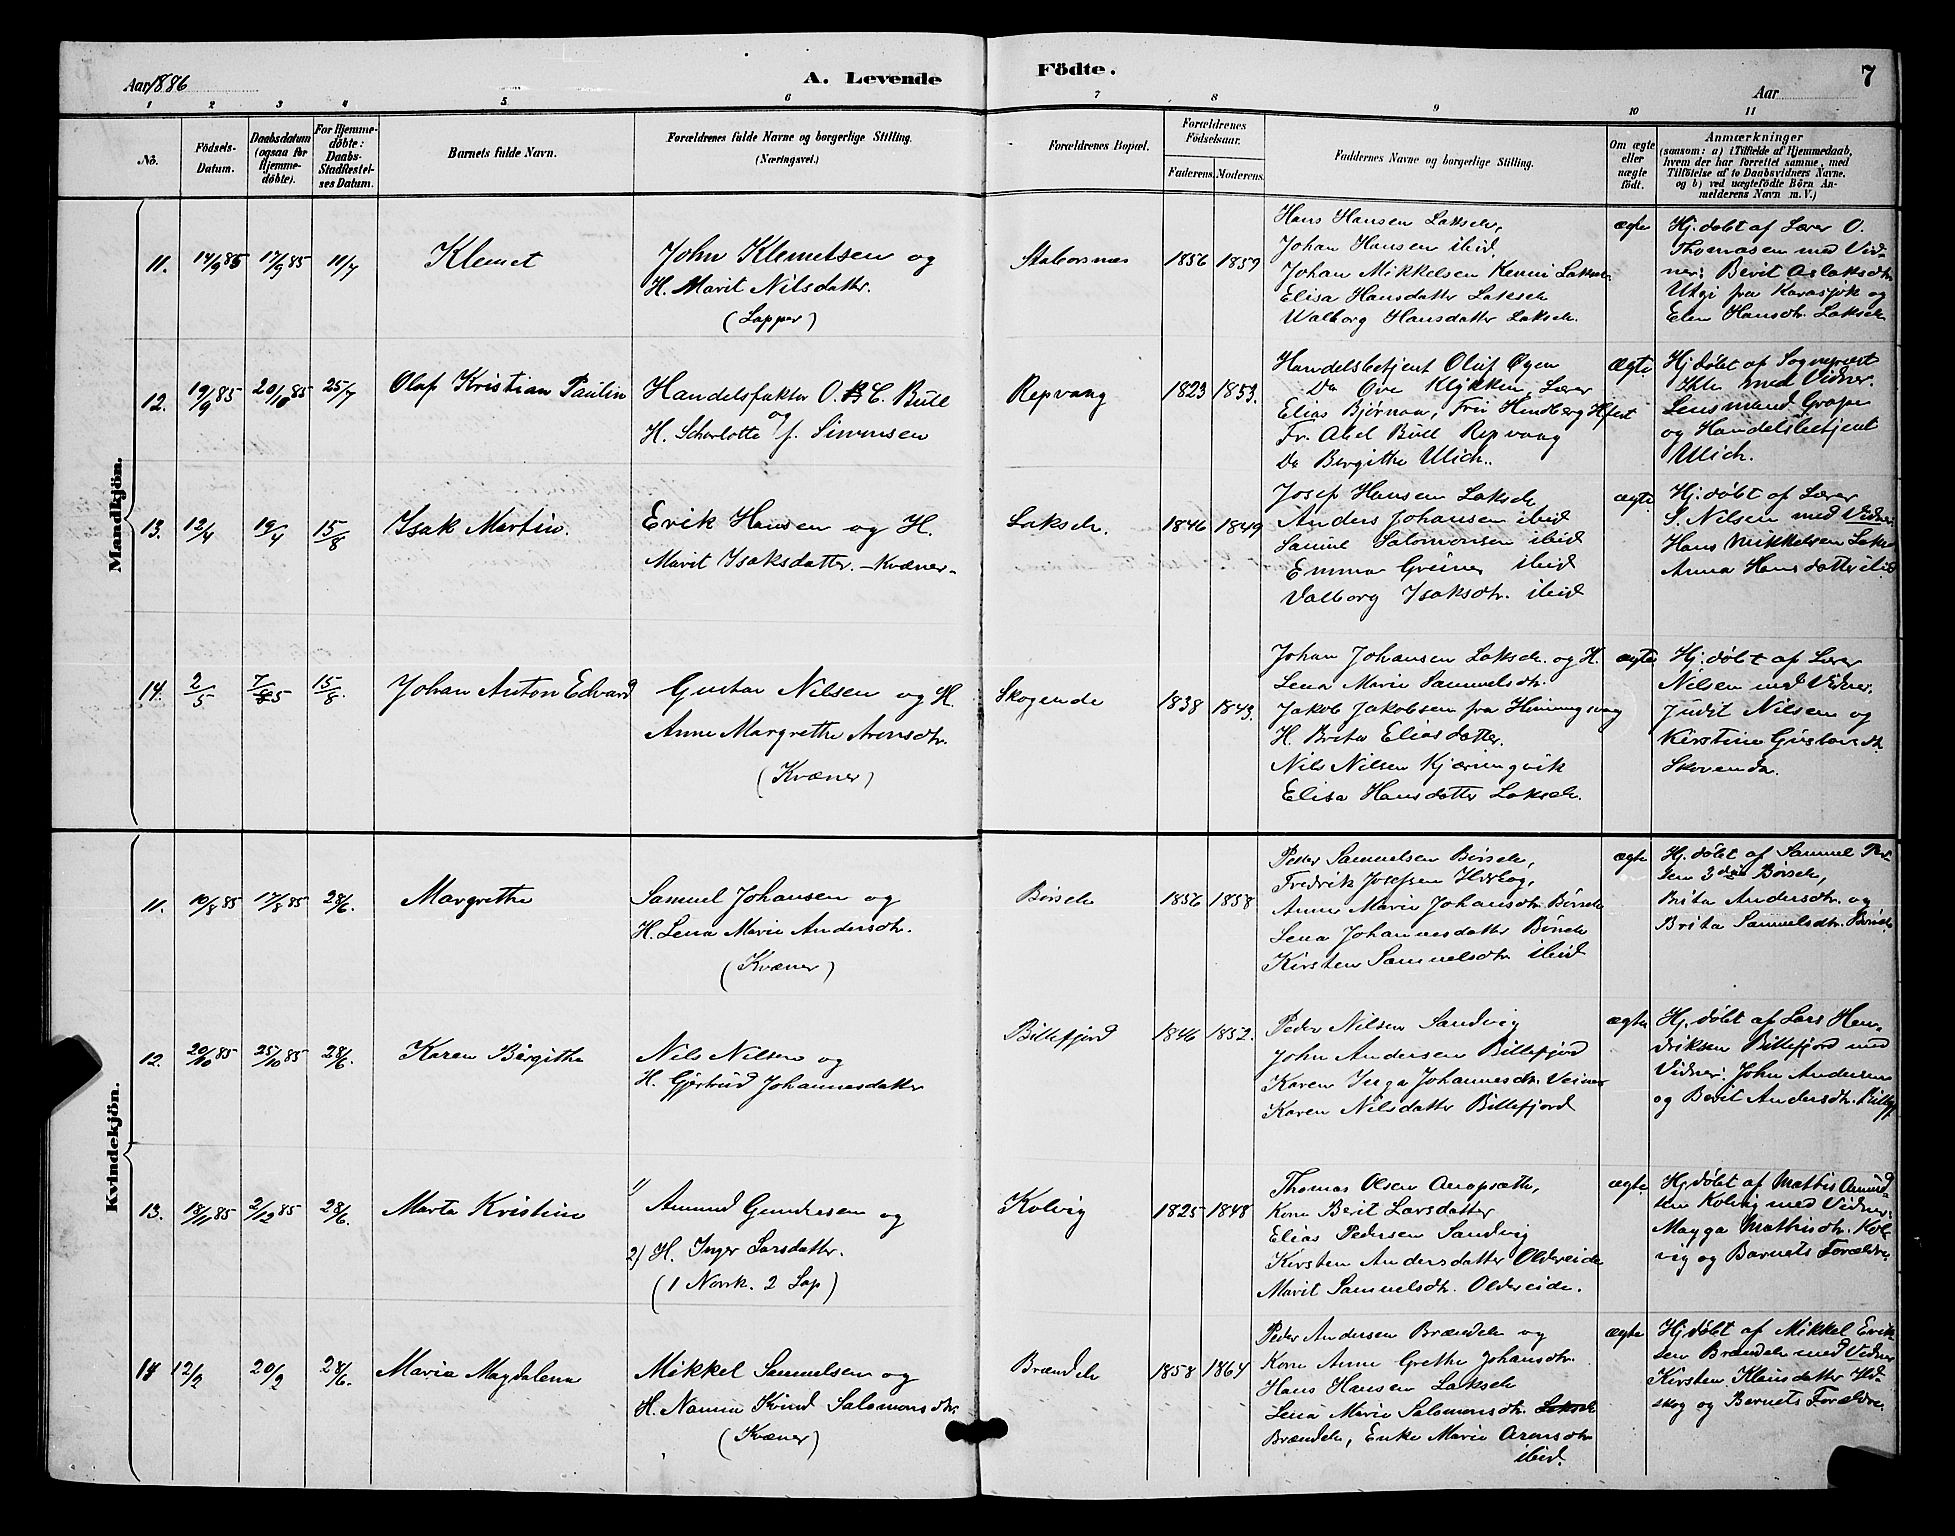 Aar 1886
A. Levende
Födte.
7
Aar
1 2 3 4 5 6 7 8 9 10 11
No.
Födsels-
Datum.
Daabsdatum
(ogsaa for
Hjemme-
døbte).
For Hjemme-
døbte:
Daabs-
Stadfæstel-
ses Datum.
Barnets fulde Navn.
Forældrenes fulde Navne og borgerlige Stilling.
(Næringsvei.)
Forældrenes Bopæl.
Forældrenes
Födselsaar.
Faderens. Moderens.
Faddernes Navne og borgerlige Stilling.
Om ægte
eller
uægte
födt.
Anmærkninger
(saasom: a) i Tilfælde af Hjemmedaab,
hvem der har forrettet samme, med
Tilföielse af to Daabsvidners Navne.
og b) ved uægtefödte Börn An-
melderens Navn m. V.)
Mandkjön.
11. 14/9 85 17/9 85 11/7
Klemet
John Klemetsen og
H. Marit Nilsdatter.
(Lapper)
Staborsnes
1856 1859
Hans Hansen Lakselv,
Johan Hansen ibid.
Johan Mikkelsen Kemi Lakselv
Elisa Hansdatter Lakselv
Walborg Hansdatter Lakselv.
ægte
Hj. døbt af Lærer O.
Thomasen med Vid-
ner: Berit Aslaksdtr
Utsi fra Karasjok og
Elen Hansdtr. Lakselv
12. 19/9 85 20/10 85 25/7
Olaf Kristian Paulin
Handelsfaktor O. B. C. Bull
og
H. Scharlotte f. Simonsen
Repvaag
1823 1853.
Handelsbetjent Oluf Øyen
Do Ove Klykken, Lærer
Elias Bjørnaa, Frü Hindberg Hfest
Fr. Abel Büll Repvaag
Do Bergithe Ulich.
ægte.
Hj. døbt af Sognepræst
med Vidner.
Lensmand Grape
og Handelsbetjent
Ulich.
13. 12/4 19/4 15/8
Isak Martin.
Erik Hansen og H.
Marit Isaksdatter. - Kvæner -
Lakselv.
1846 1849
Josef Hansen Lakselv
Anders Johansen ibid
Samul Salomonsen ibid
Emma Greiner ibid
Valborg Isaksdtr. ibid
ægte.
Hj. døbt af Lærer
S. Nilsen med Vidner
Hans Mikkelsen Lakse
Anna Hansdatter ibid
14. 2/5 7/5 15/8.
Johan Anton Edvard
Gustav Nilsen og H.
Anne Margrethe Arensdtr.
(Kvæner)
Skogende
1838 1843.
Johan Johansen Lakselv. og H.
Lena Marie Samuelsdtr.
Jakob Jakobsen fra Honningsvaag
H. Brita Eliasdatter.
Nils Nilsen Kjæringvik
Elisa Hansdatter Lakselv.
ægte
Hj. døbt af Lærer
Nilsen med Vidner.
Judit Nilsen og
Kirstine Gustavsdtr.
Skovende.
Kvindekjön.
11. 10/8 85 17/8 85 28/6.
Margrethe
Samuel Johansen og
H. Lena Marie Andersdtr.
(Kvæner)
Børselv
1856 1858
Peder Samuelsen Børselv,
Fredrik Josefsen Hdskog,
Anne Marie Johansdtr. Børselv
Lena Johannesdatter Børselv
Kirsten Samuelsdtr. ibid
ægte
Hj. døbt af Samuel Per-
sen Børselv,
Brita Andersdtr. og
Brita Samuelsdtr. Børselv
12. 20/10 85 25/10 85 28/6.
Karen Birgithe
Nils Nilsen og
H. Gjertrud Johannesdatter
Billefjord
1846 1852.
Peder Nilsen Sandvig
John Andersen Billefjord
Karen Inga Johannesdtr. Veines
Karen Nilsdatter Billefjord
ægte
Hj. døbt af Lars Hen-
driksen Billefjord med
Vidner: John Andersen
og Berit Andersdtr. Billefj
13. 18/11 85 2/12 85 28/6.
Marta Kristine
1) Amund Gundersen og
2) H. Inger Larsdatter.
(1 Norsk. 2 Lap)
Kolvig
1825 1848
Thomas Olsen
Kone Berit Larsdatter
Elias Pedersen Sandvig
Kirsten Andersdatter Oldereide
Marit Samuelsdtr. Oldereide.
ægte.
Hj. døbt af Mathis Amund-
sen Kolvig med Vidner:
Magga Mathisdtr. Kol-
vig og Barnets Forældre.
14 12/2 20/2 28/6.
Maria Magdalena
Mikkel Samuelsen og
H. Nanna Kvind Salomonsdtr.
(Kvæner)
Brændelv
1858 1864
Peder Andersen Brændelv og
Kone Anne Grethe Johansdtr.
Hans Hansen Lakselv
Lena Marie Salomonsdtr. Lakselv
Brændelv, Enke Marie Arensdtr
ibid.
ægte
Hj. døbt af Mikkel Erik-
sen Brændelv med Vidner
Kirsten Klausdatter Hd-
skog og Barnets Forældre.